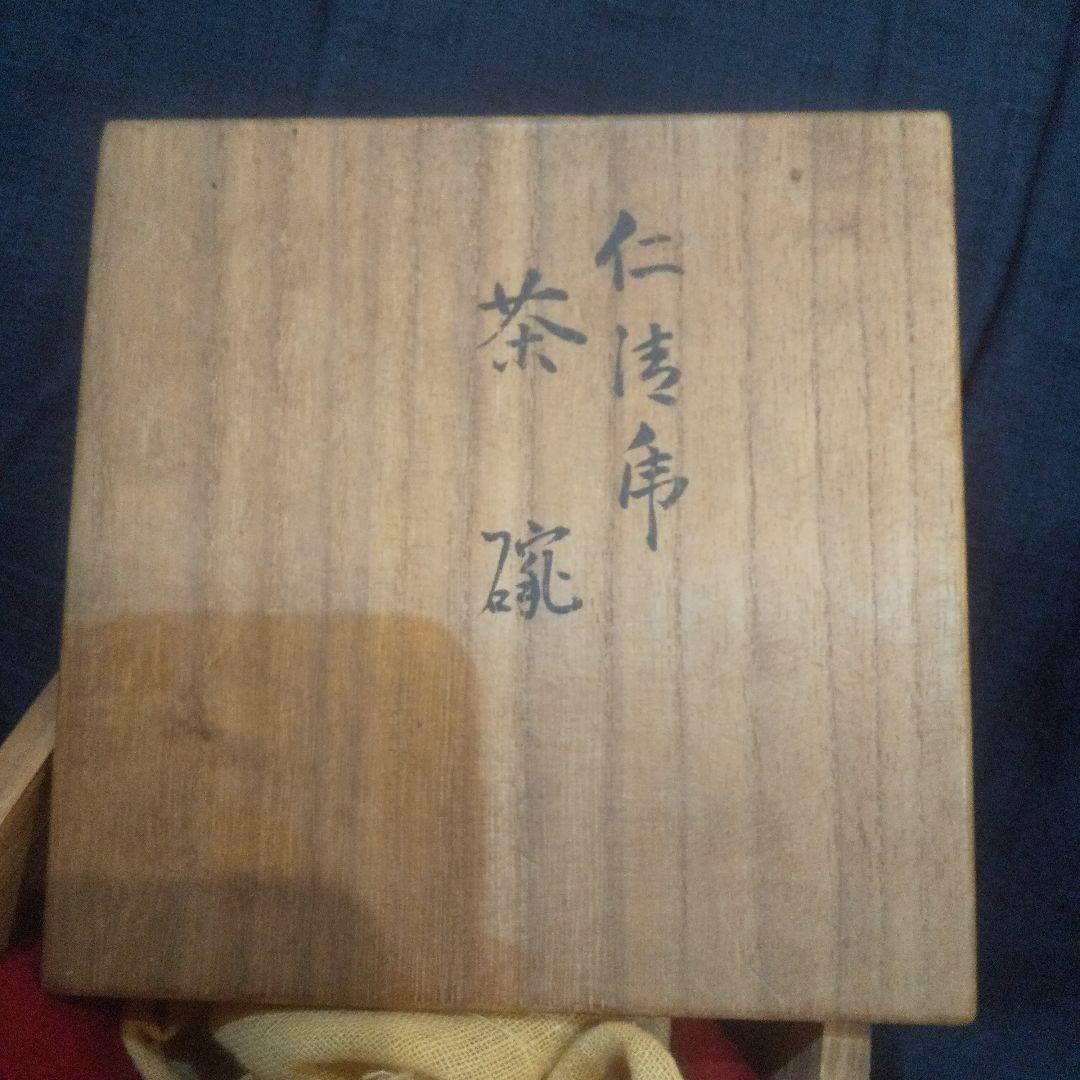 仁清乕
茶碗